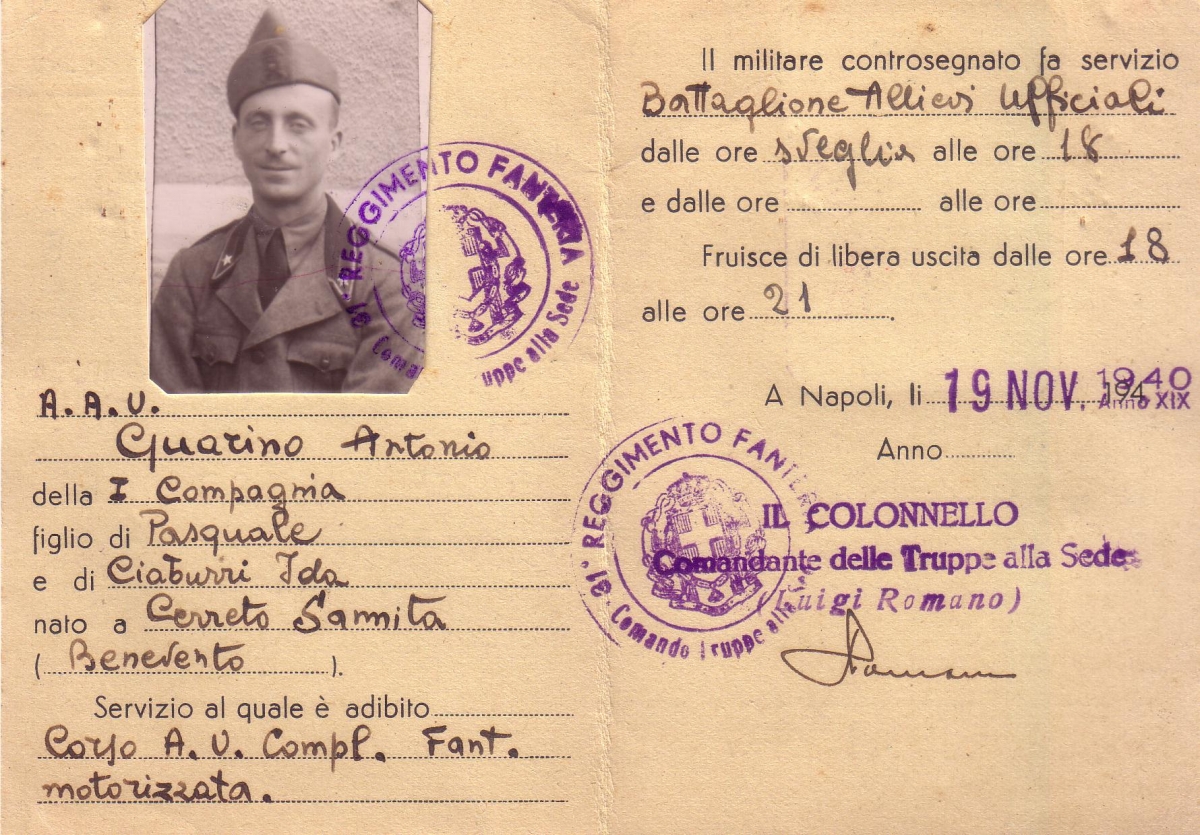 A.A.U.
Guarino Antonio
della I Compagnia
figlio di Pasquale
e di Ciaburri Ida
nato a Cerreto Sannita
( Benevento ).
Servizio al quale è adibito
Corso A. U. Compl. Fant.
motorizzata.
31°. REGGIMENTO FANTERIA
Coma uppe alla Sede
Il militare controsegnato fa servizio
Battaglione Allievi Ufficiali
dalle ore sveglia alle ore 18
e dalle ore alle ore
Fruisce di libera uscita dalle ore 18
alle ore 21 .
A Napoli, li 19 NOV. 194 1940
Anno XIX
Anno
31°. REGGIMENTO FANTER
Comando Truppe alla
IL COLONNELLO
Comandante delle Truppe alla Sede
(Luigi Romano)
Romano